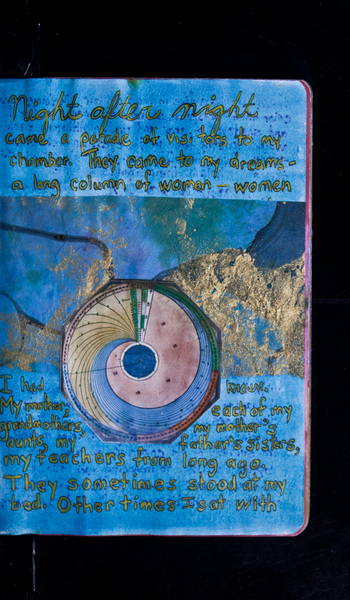 Night after night
came a parade of visitors to my
chamber. They came to my dreams-
a long column of woman — women
I had known.
My mother, each of my
grandmothers, my mother's
aunts, my father's sisters,
my teachers from long ago.
They sometimes stood at my
bed. Other times I sat with